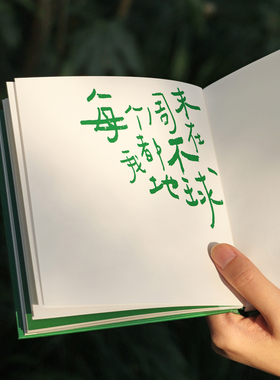 每个周末
我都不在
地球